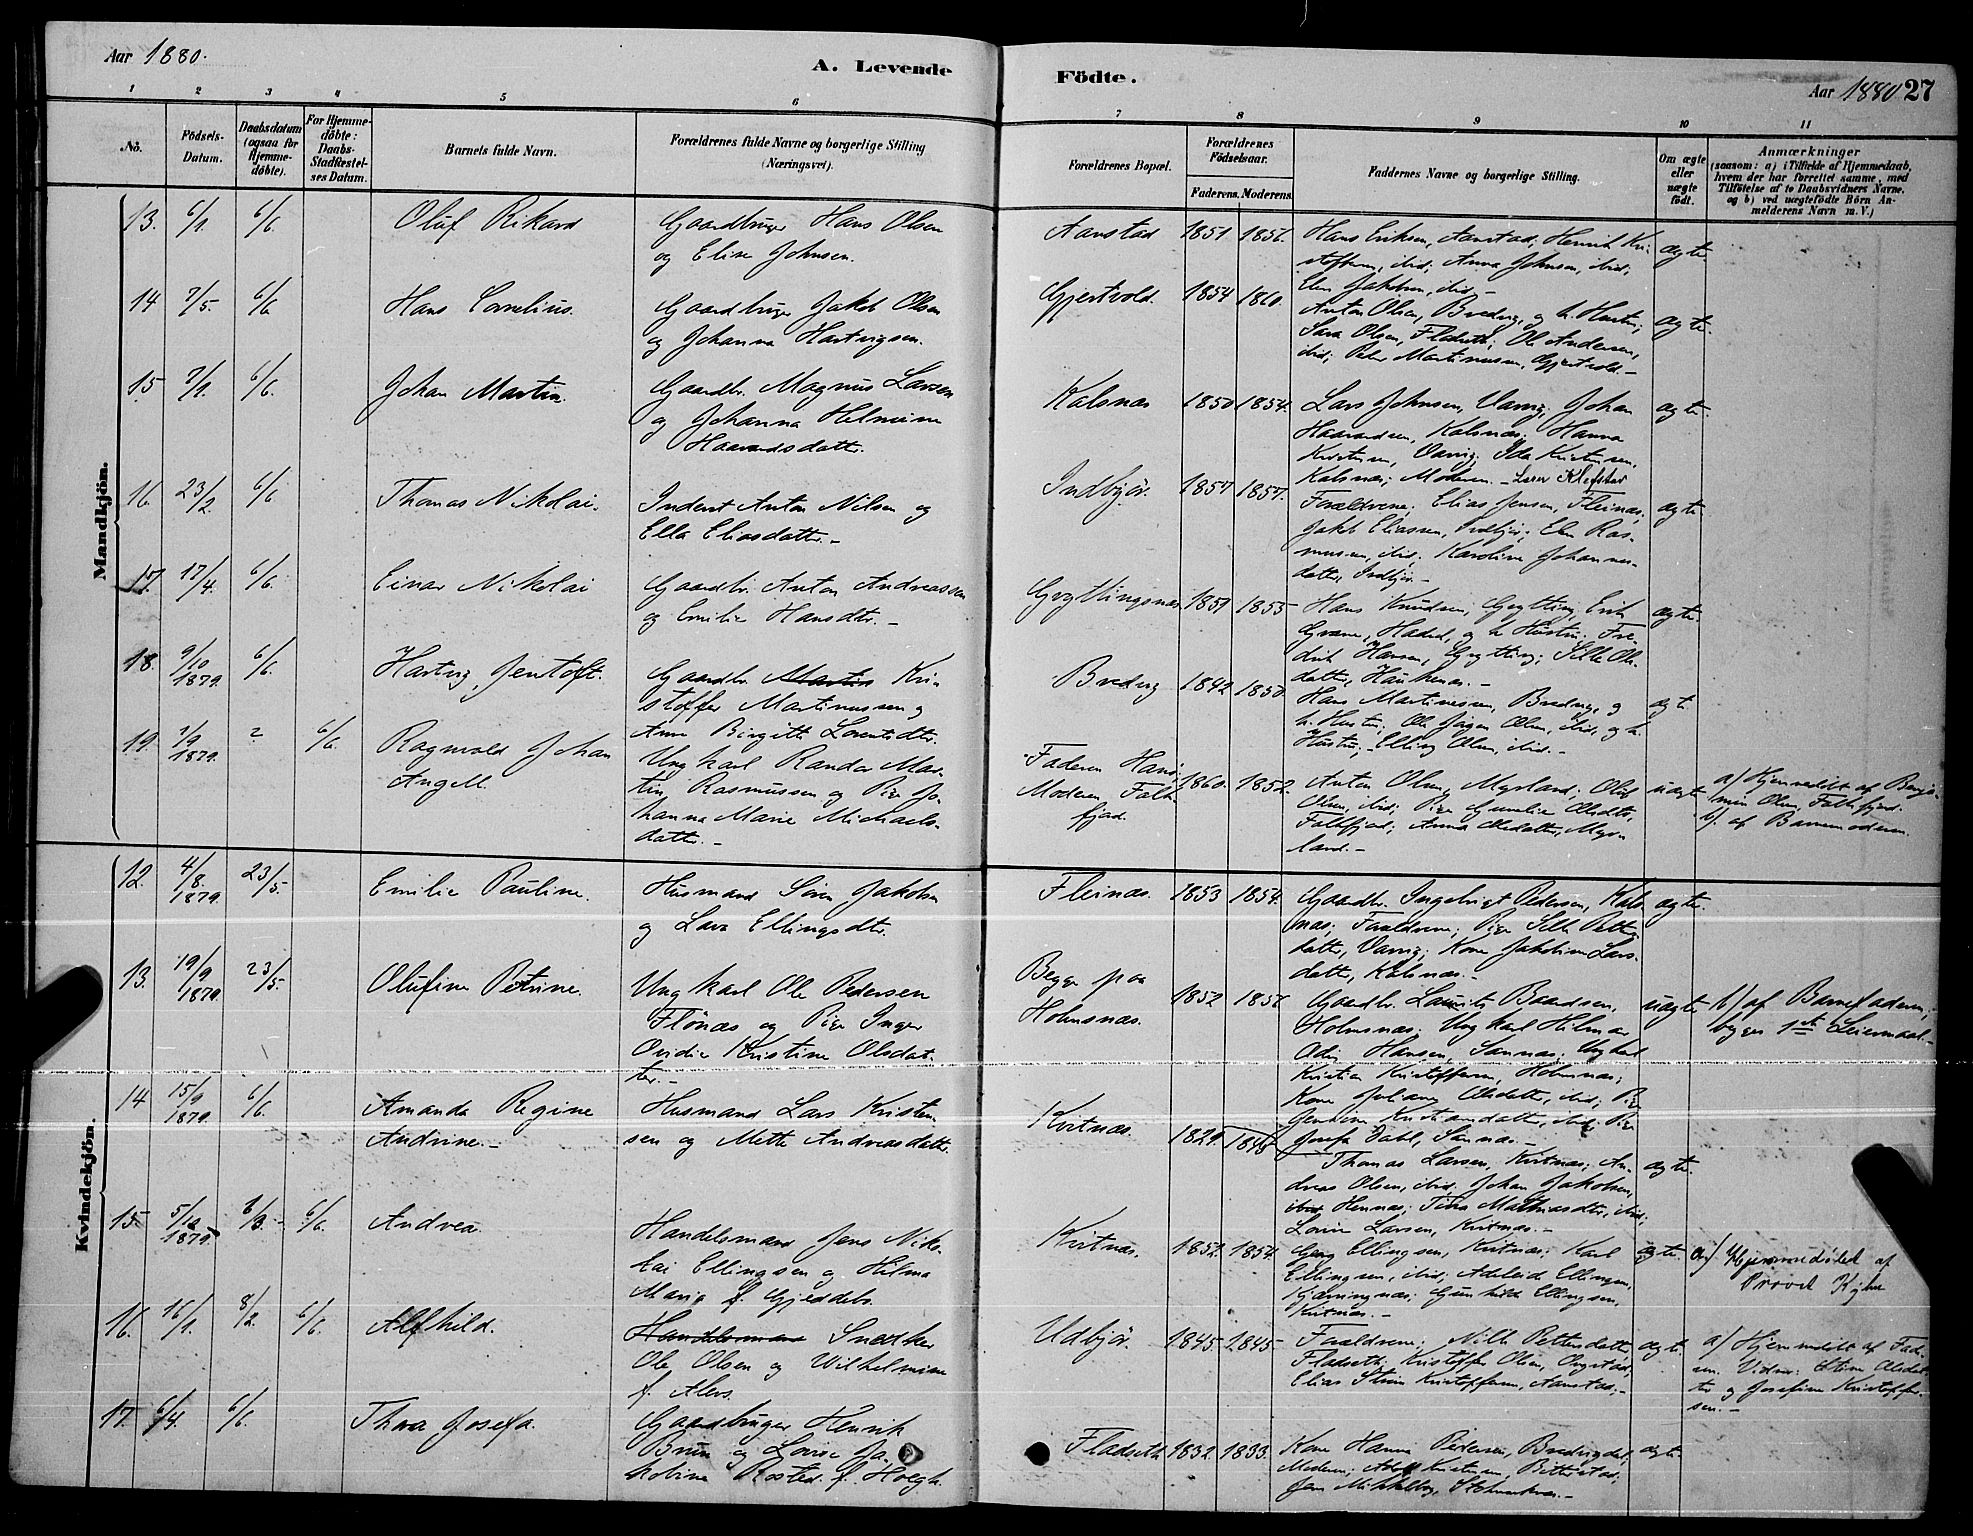 Aar 1880.
A. Levende Födte.
Aar 1880 27
1 2 3 4 5 6 7 8 9 10 11
No.
Födsels-Datum.
Daabsdatum (ogsaa for Hjemme-döbte).
For Hjemme-döbte: Daabs-Stadfæstel-ses Datum.
Barnets fulde Navn.
Forældrenes fulde Navne og borgerlige Stilling (Næringsvei).
Forældrenes Bopæl.
Forældrenes Födselsaar.
Faderens. Moderens.
Faddernes Navne og borgerlige Stilling.
Om ægte eller uægte födt.
Anmærkninger
(saasom: a) i Tilfælde af Hjemmedaab,
hvem der har forrettet samme, med
Tilföielse af to Daabsvidners Navne.
og b) ved uægtefödte Börn An-
melderens Navn m. V.)
Mandkjön.
13. 6/1. 6/6. Oluf Rikard
Gaardbruger Hans Olsen
og Elise Johnsen.
Aanstad 1851 1856.
Hans Eriksen, Aanstad; Henrik Kri-
stoffersen, ibid; Anna Johnsen, ibid;
Jakobsen, ibid.-
ægte.
14 7/5. 6/6 Hans Cornelius.
Gaardbruger Jakob Olsen
og Johanna Hartvigsen.
Gjertvold. 1854 1860.
Anton Olsen, Bredvig, og h. Hustru;
Sara Olsen, Fladseth; Ole Andersen,
ibid; Peder Martinussen, Gjertvold.-
ægte.
15 7/1. 6/6. Johan Martin.
Gaardbr. Magnus Larsen
og Johanna Helmine
Haavardsdatter.
Kalsnæs 1850 1854.
Lars Johnsen, Varvig; Johan
Haavardsen, Kalsnæs; Hanna
Kristensen, Varvig; Ida Kristensen,
Kalsnæs; Moderen.
ægte
16. 23/2 6/6 Thomas Nikolai.
Inderst Anton Nilsen og
Ella Eliasdatter.-
Indbjör. 1857 1857.
Forældrene; Elias Jensen, Fleinæs;
Jakob Eliassen, Indbjör; Elen Ras-
mussen, ibid; Karoline Johannes-
datter, Indbjör.-
ægte
17. 17/4. 6/6. Einar Nikolai
Gaardbr. Anton Andreassen
og Emilie Hansdtr.-
Gryttingsnæs 1851 1855
Hans Knudsen, Grytting; Erik
Hadsel, og h. Hustru; Fre-
drik Hansen, Grytting; Ols-
datter, Haukenæs.-
ægte.
18. 9/10 1879. 6/6. Hartvig Jentoft.
Gaardbr. Martin Kri-
stoffer Martinussen og
Anne Birgitte Lorentsdtr.
Bredvig 1842 1850
Hans Martinussen, Bredvig, og
h. Hustru; Ole Olsen, ibid, og h.
Hustru; Elling Olsen, ibid.-
ægte
19. 7/9 1879. ? 6/6. Ragnvald Johan
Angell.
Ungkarl Mar-
tin Rasmussen og Pige Jo-
hanna Marie Michaels-
datter.-
Faderen
Moderen Falk-
fjord. 1860. 1852.
Anton Olsen, Myrland; Oluf
Olsen, ibid; Pige Olsdtr,
Falkfjord; Anna Olsdatter, Myr-
land.-
uægte
a/ Hjemmedöbt af Benja-
min Olsen, Falkfjord.
b/. af Barnemoderen.
Kvindekjön.
12. 4/8. 1879. 23/5. Emilie Pauline.
Husmand Sören Jakobsen
og Lava Ellingsdtr.
Fleinæs. 1853 1854.
Gaardbr. Ingebrigt Pedersen, Kals-
næs; Forældrene; Pige Petters-
datter, Varvig; Kone Jakobine Lars-
datter, Kalsnæs.-
ægte.
13. 19/9 1879. 23/5. Olufine Petrine.
Ungkarl Ole Pedersen
Flönæs og Pige Inger
Ovidie Kristine Olsdat-
ter.-
Begge paa
Holmsnæs. 1852 1856
Gaardbr. Lauritz Baardsen,
Holmsnæs; Ungkarl Hilmar
Odin Hansen, Sannæs; Ungkarl
Kristian Kristoffersen, Holmsnæs;
Kone Juliane Olsdatter, ibid; Pige
Kristiansdatter, ibid; Pige
Josefa Dahl, Sannæs.-
uægte
b/ af Barnefaderen;
begges 1ste Leiermaal.-
14 15/9 1879 6/6. Amanda Regine
Andrine.-
Husmand Lars Kristen-
sen og Mette Andreasdatter.
Kvitnæs. 1829 1845
Thomas Larsen, Kvitnæs; An-
dreas Olsen, ibid; Johan Jakobsen,
Hennæs; Mathiasdtr, ibid;
Lovise Larsen, Kvitnæs.-
ægte.
15. 5/12 1879. 6/3. 6/6. Andrea.
Handelsmand Jens Niko-
lai Ellingsen og Hilma
Maria f. Gjeddebo.
Kvitnæs. 1852. 1854.
Georg Ellingsen, Kvitnæs; Karl
Ellingsen, ibid; Adelaid Ellingsen,
Gunhilda Ellingsen,
Kvitnæs.-
ægte
a/ Hjemmedöbt af
Provst Kyhn
16. 16/1. 8/2. 6/6. Alfhild.
Handelsmand Snedker
Ole Olsen og Wilhelmine
f. Alers.
Udbjör. 1845. 1845.
Forældrene; Pettersdatter,
Fladseth; Kristoffer Olsen,
Elias Kristoffersen, Aanstad.-
ægte.
a/ Hjemmedöbt af Fade-
ren. Vidner: Olsdat-
ter og Josefine Kristoffer-
sen.-
17. 6/4. 6/6. Thora Josefa.
Gaardbruger Henrik
Bruun og Lovise Ja-
kobine Rosted f. Hoegh.
Fladseth 1832. 1833.
Kone Hanna Pedersen, Bredvigdal;
Moderen; Kristensen, Bitterstad;
Jens Mikkelborg, Stokmarknæs.-
ægte.